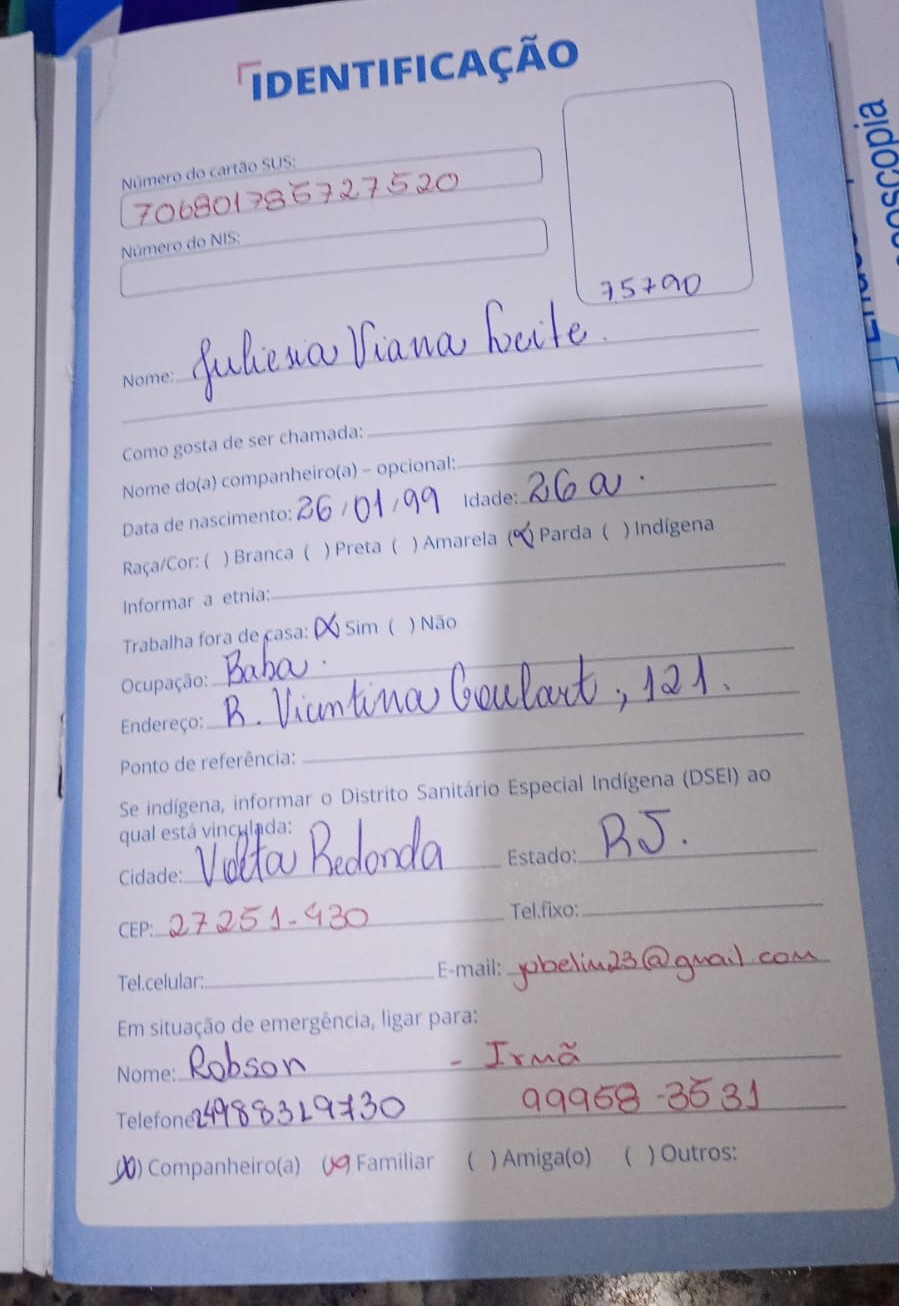 IDENTIFICAÇÃO
Número do cartão SUS:
706801785727520
Número do NIS:
75790
Nome: Viana Leite.
Como gosta de ser chamada:
Nome do(a) companheiro(a) – opcional:
Data de nascimento: 26/01/99 Idade: 26 a.
Raça/Cor: ( ) Branca ( ) Preta ( ) Amarela (x) Parda ( ) Indígena
Informar a etnia:
Trabalha fora de casa: (x) Sim ( ) Não
Ocupação: Baba.
Endereço: R. Vicentina Goulart, 121.
Ponto de referência:
Se indígena, informar o Distrito Sanitário Especial Indígena (DSEI) ao
qual está vinculada:
Cidade: Volta Redonda Estado: RJ.
CEP: 27251-430 Tel.fixo:
Tel.celular: E-mail: @gmail.com
Em situação de emergência, ligar para:
Nome: Robson - Irmã
Telefone 24988329730 99958-3531
(x) Companheiro(a) (x) Familiar ( ) Amiga(o) ( ) Outros: